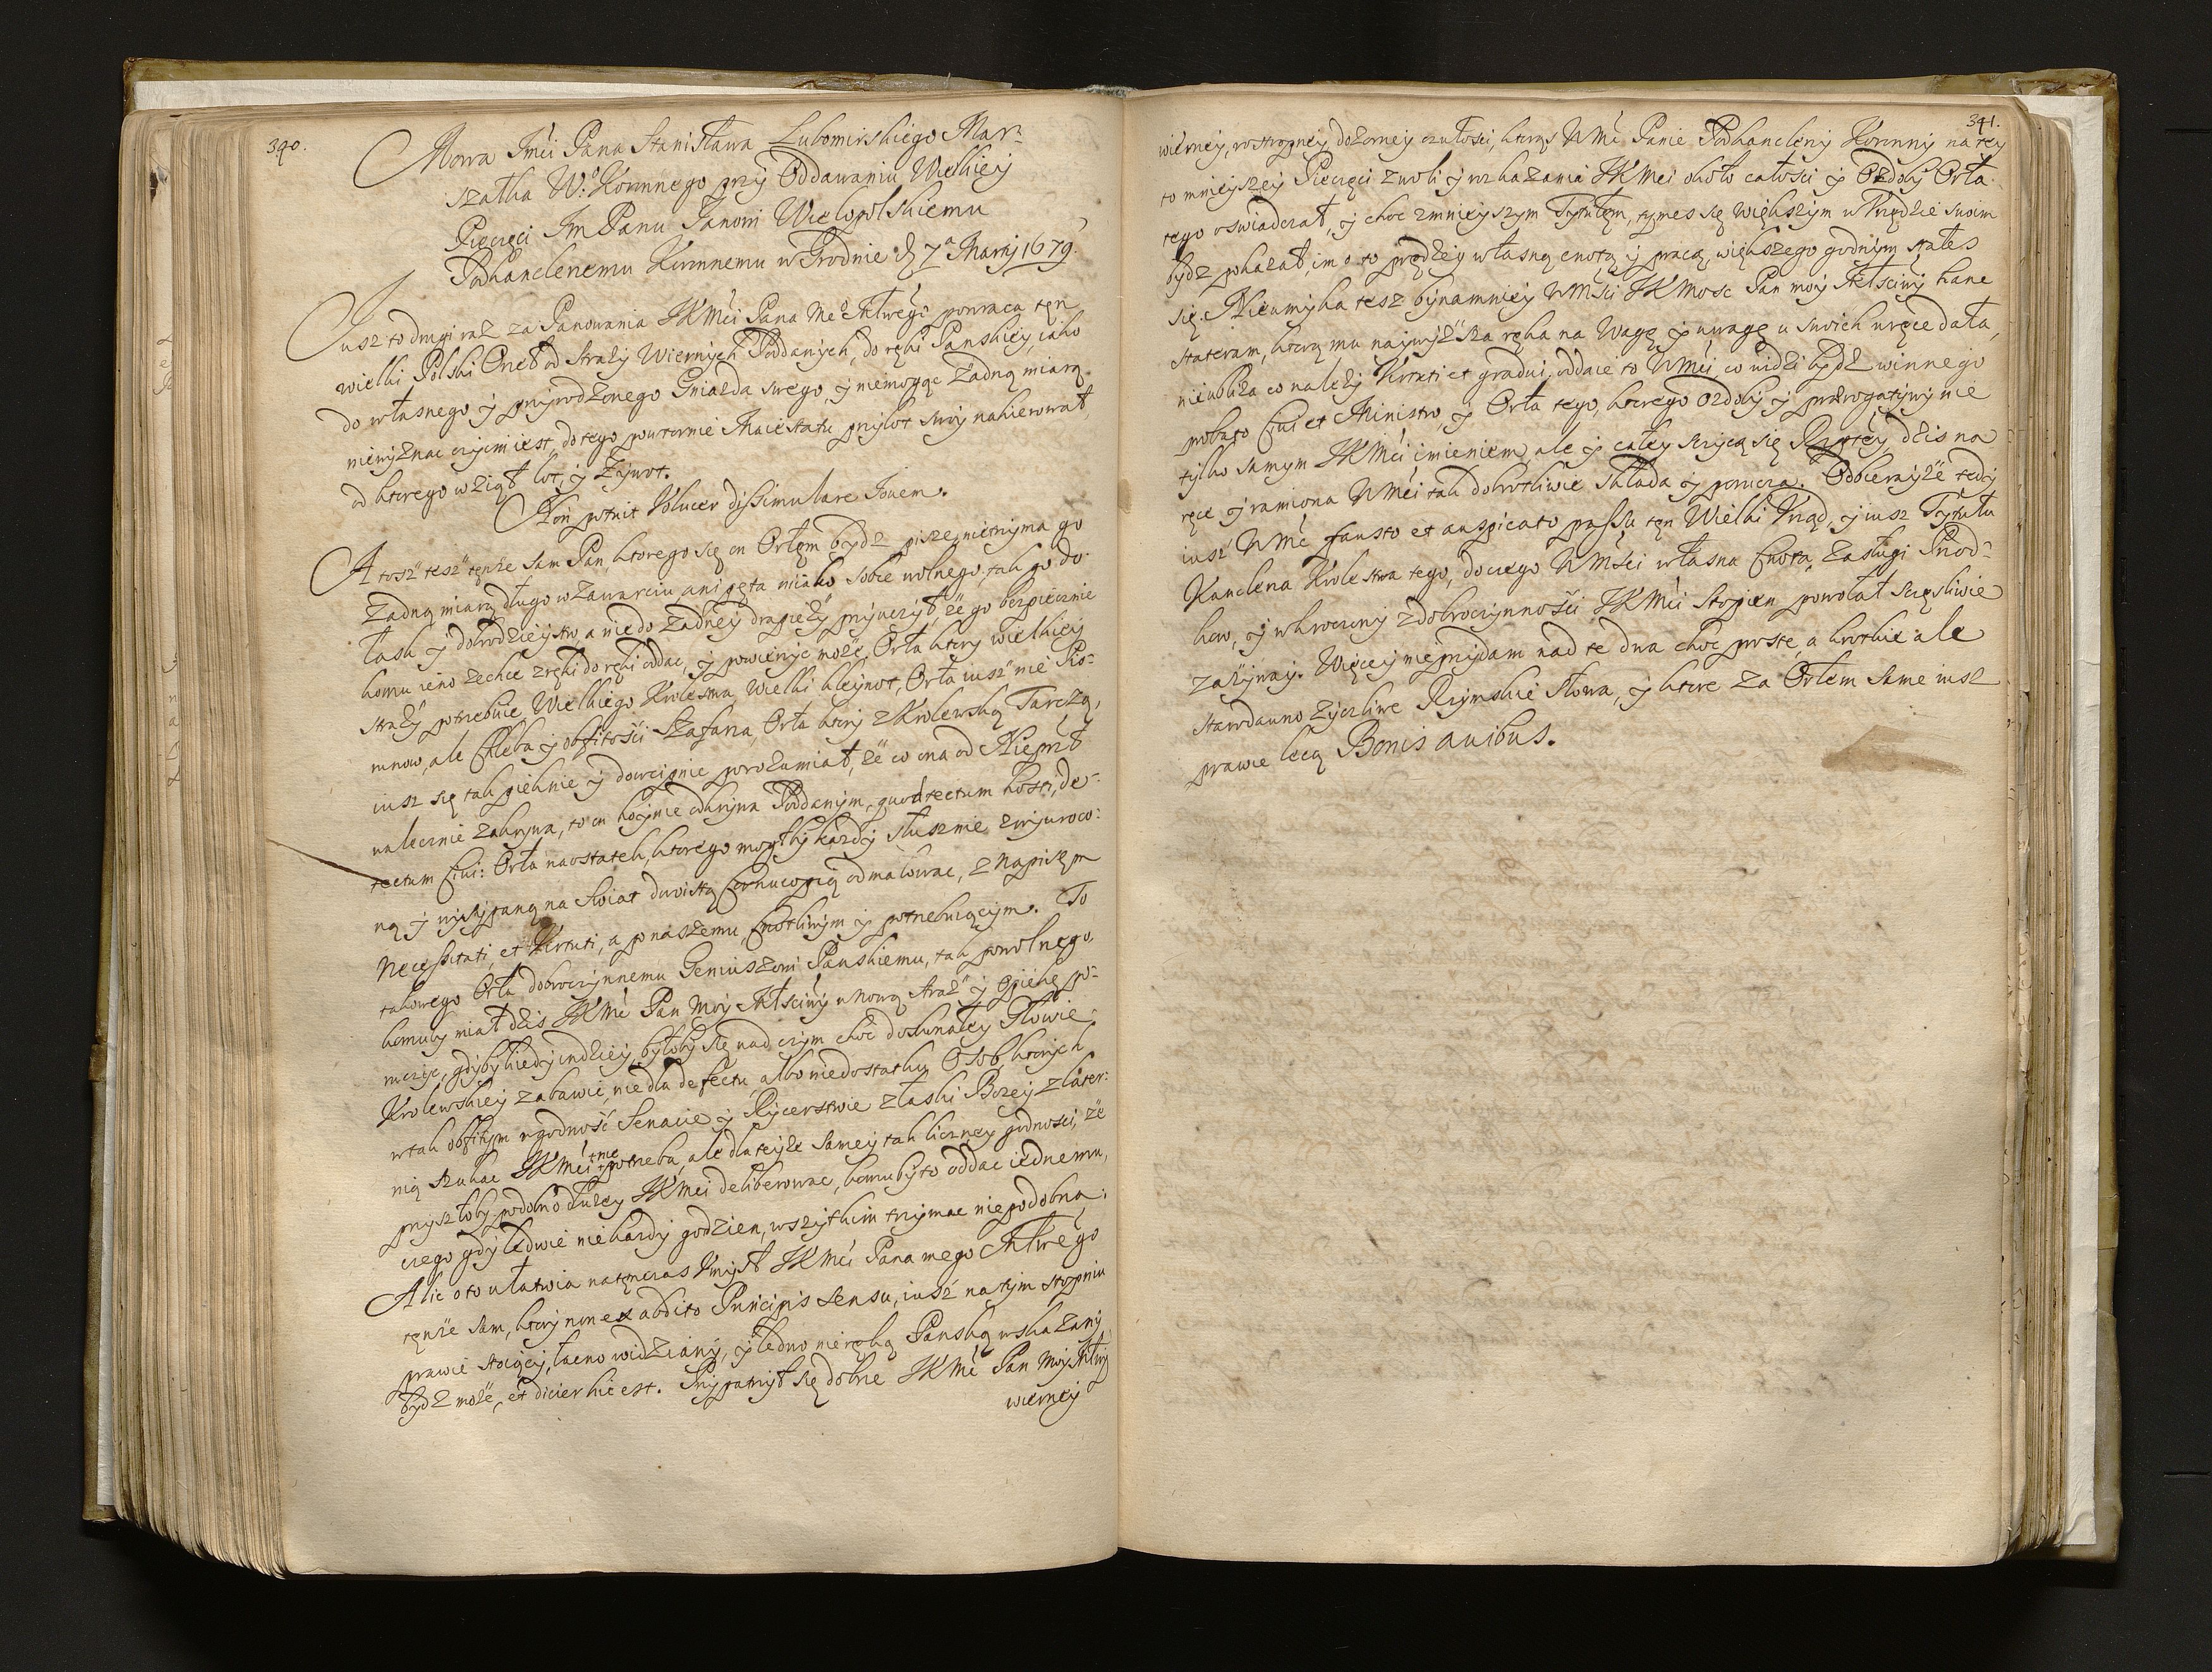 390.
Mowa Jmći Pana Stanisława Lubomirskiego Mar-
szałka W.° Koronnego przÿ Oddawaniu Wielkieÿ
Pieczęci Jm Panu Janowi Wielopolskiemu
Podkanclerzemu Koronnemu w Grodnie d 7ª Martÿ 1679.
Jusz to drugi raz za Panowania JKMći Pana Me° Miłwe° powraca ten
wielki Polski Orzeł od Strażÿ Wiernÿch Poddanÿch, do ręki Panskieÿ, iako
do własnego ÿ przÿrodzonego Gniazda swego, ÿ niemogąc żadną miarą
niewÿznac czÿim iest, do tego powtornie Maiestatu przÿlot swoÿ nakierował
od ktorego wziął lot, ÿ żÿwot.
Non potuit Volucer dissimulare Jovem.
A tosz tesz tęnże sam Pan, ktorego się on Orłęm bÿdz pisze, nietrzÿma go
żadną miarą długo w zawarciu, ani pęta iako sobie wolnego, tak go do
łask ÿ dobrodzieÿstw, a nie do żadneÿ drapieżÿ przÿuczÿł, że go bezpiecznie
komu ieno zechce z ręki do ręki oddac, ÿ powierzÿc może, Orła ktorÿ wielkieÿ
strażÿ potrzebuie Wielkiego Krolestwa Wielki kleÿnot, Orła iusz nie Pio-
runow, ale Chleba ÿ obfitości Szafarza, Orła ktorÿ z Krolewską Tarczą,
iusz się tak pieknie ÿ dowcipnie porozumiał, że co ona od Nieprzł
walecznie zakrÿwa, to on hoÿnie odkrÿwa Poddanÿm, quod tectum hosti, de-
tectum Civi: Orła naostatek, ktorego mogłbÿ każdÿ słusznie z wÿwroco-
ną ÿ wÿsÿpaną na Swiat dwoistą Cornucopią odmalowac, z Napisęm
Necessitati, et Virtuti, a po naszemu, Cnotliwÿm ÿ potrzebuiącÿm. To
takowego Orła dobroczÿnnemu Geniuszowi Panskiemu, tak powolnego,
komubÿ miał dzis JKMć Pan Moÿ Miłościwÿ w Nową straż ÿ Opiekę po-
ruczÿc, gdÿbÿ kiedÿ indzieÿ, bÿłobÿ się nad czÿm choc doskonałeÿ Głowie
Krolewskieÿ zabawic, nie dla defectu, albo niedostatku Osob, ktorÿch
w tak obfitÿm w godność Senacie ÿ Rÿcerstwie z łaski Bożeÿ z later-
nią szukac JKMći nie potrzeba, ale dla teÿże sameÿ tak liczneÿ godności, że
przÿszłobÿ podobno dłużeÿ JKMći deliberowac, komubÿ to oddac iednemu,
czego gdÿ ledwie nie kazdÿ godzien, wszÿtkim trzÿmac niepodobna:
Alić oto ułatwia natęnczas Umÿsł JKMći Pana mego Miłwego
tęnże sam, ktorÿ non ex abdito Principis sensu, iusz na tÿm stopniu
prawie stoiącÿ, łacno widzianÿ, ÿ ledwo nie ręką Panską wskazanÿ
bÿdz może, et dicier hic est. Przÿpatrzÿł się dobrze JKMć Pan Moÿ Miłwÿ
wierneÿ
391.
wierneÿ, rostropneÿ, dozorneÿ czułości, ktorąs WMć Panie Podkanclerzÿ Koronnÿ na teÿ
to mnieÿszeÿ Pieczęci z woli ÿ rozkazania JKMći około całości ÿ Ozdobÿ Orła
tego oswiadczał, ÿ choc z mnieÿszÿm Tÿtułęm, tÿmes się większÿm w Urzędzie swoim
bÿdz pokazał, im o to prędzeÿ własną cnotą ÿ pracą, większego godnÿm stałes
się. Nieumÿka tesz bÿnamnieÿ WMści JKMosc Pan moÿ Miłsciwÿ hanc
stateram, ktorą mu naÿwÿższa ręka na Wagę ÿ uwagę u swoich w ręce dała,
nieubliża co należÿ Virtuti et gradui, oddaie to WMći co widzi bÿdz winnego
probato Civi et Ministro, ÿ Orła tego, ktorego ozdobÿ ÿ prærogatiwÿ nie
tÿlko samÿm JKMći imieniem, ale ÿ całeÿ szczÿcą się Rzpteÿ, dzis na
ręce ÿ ramiona WMći tak dobrotliwie składa ÿ porucza. Odbieraÿże tedÿ
iusz WMć fausto et auspicato passu, ten Wielki Urząd, ÿ iusz Tÿtułu
Kanclerza Krolestwa tego, do czego WMści własna Cnota, zasługi Przod-
kow, ÿ wkroczonÿ z dobroczÿnności JKMći stopien powołał szczęsliwie
zażÿwaÿ. Więceÿ nieprzÿdam nad te dwa choc proste, a krotkie ale
starodawno żÿczliwe Rzÿmskie słowa, ÿ ktore za Orłem same iusz
prawie lecą Bonis avibus.